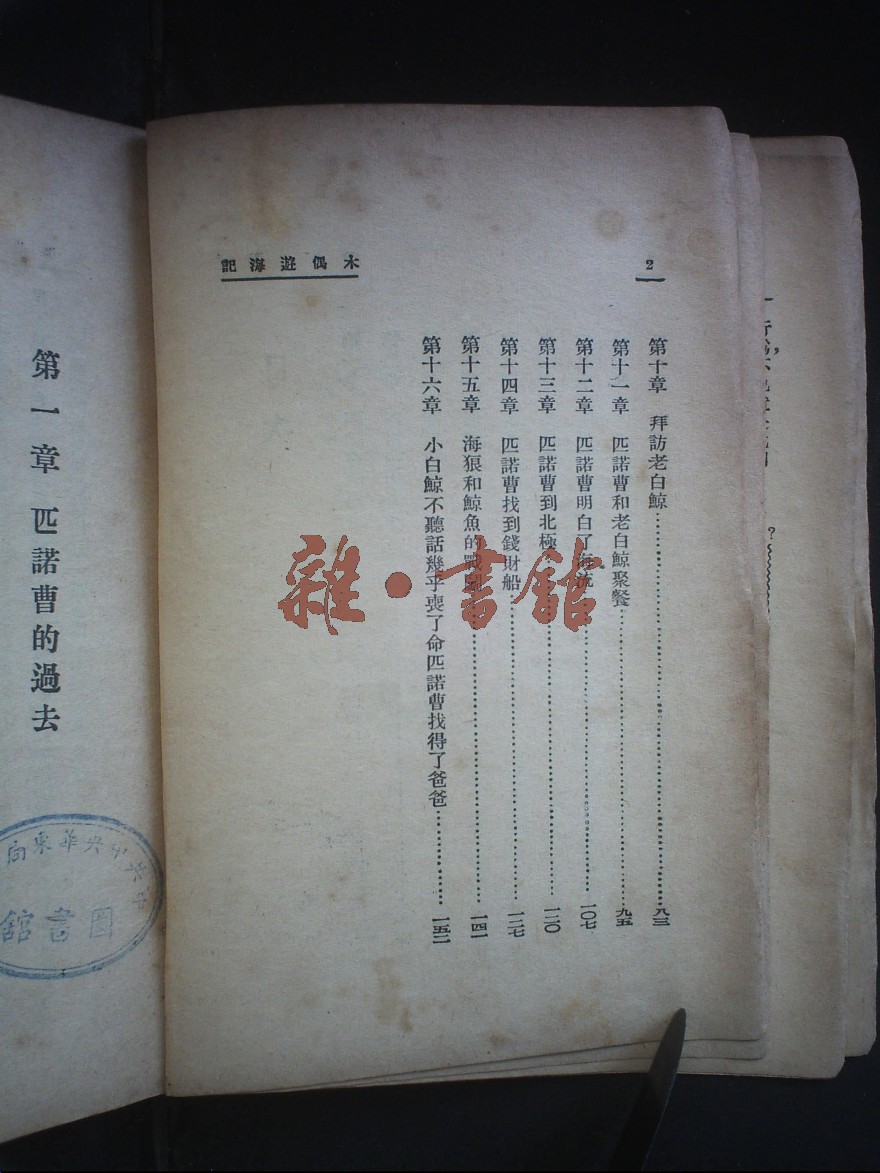 木偶遊海記
2
第十章 拜訪老白鯨 八三
第十一章 匹諾曹和老白鯨聚餐 九五
第十二章 匹諾曹明白了海流 一〇七
第十三章 匹諾曹到北極 一二〇
第十四章 匹諾曹找到錢財船 一二七
第十五章 海狼和鯨魚的戰鬪 一四一
第十六章 小白鯨不聽話幾乎喪了命匹諾曹找得了爸爸 一五二
第一章 匹諾曹的過去
中共中央華東局
圖書館
雜·書館